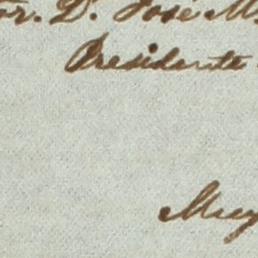 or. D. José M
Presidente
Muy